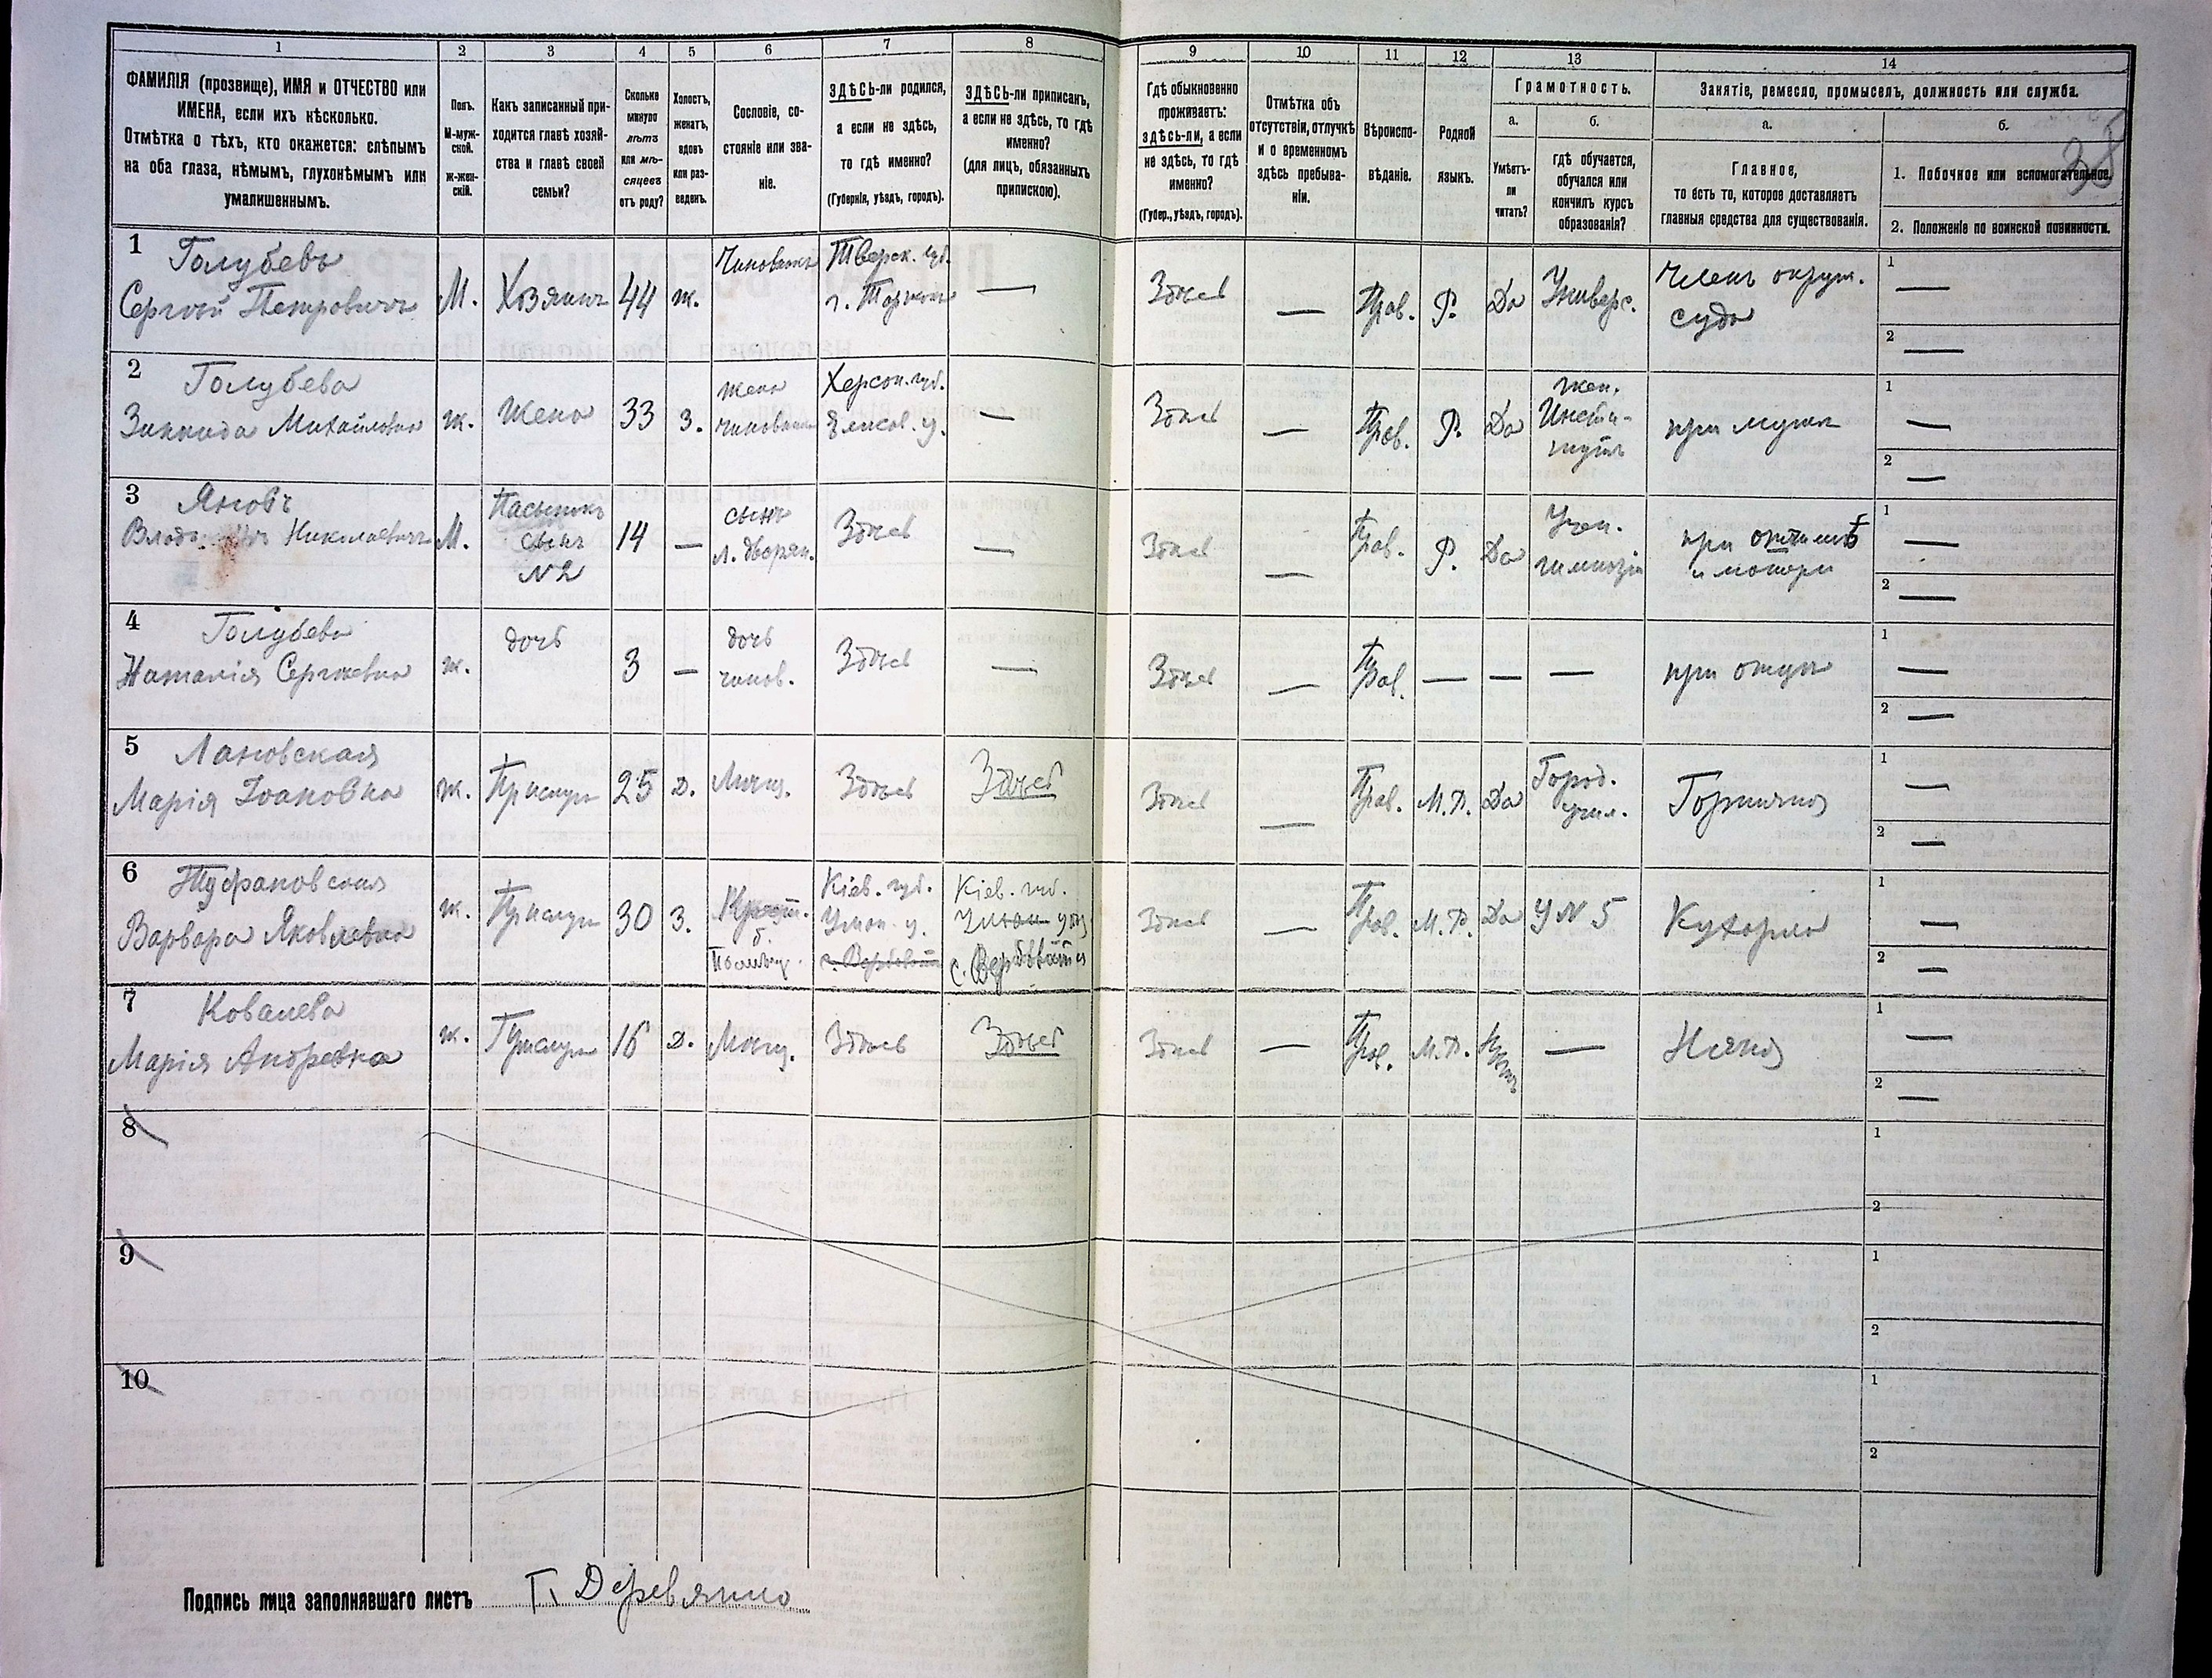 1 2 3 4 5 6 7 8 9 10 11 12 13 14
ФАМИЛІЯ (прозвище), ИМЯ и ОТЧЕСТВО или
ИМЕНА, если ихъ нѣсколько.
Отмѣтка о тѣхъ, кто окажется: слѣпымъ
на оба глаза, нѣмымъ, глухонѣмымъ или
умалишеннымъ.
Полъ.
М-муж-
ской.
ж-жен-
скій.
Какъ записанный при-
ходится главѣ хозяй-
ства и главѣ своей
семьи?
Сколько
минуло
лѣтъ
или мѣ-
сяцевъ
отъ роду?
Холостъ,
женатъ,
вдовъ
или раз-
веденъ.
Сословіе, со-
стояніе или зва-
ніе.
ЗДѢСЬ-ли родился,
а если не здѣсь,
то гдѣ именно?
(Губернія, уѣздъ, городъ).
ЗДѢСЬ-ли приписанъ,
а если не здѣсь, то гдѣ
именно?
(для лицъ, обязанныхъ
припискою).
Гдѣ обыкновенно
проживаетъ:
здѣсь-ли, а если
не здѣсь, то гдѣ
именно?
(Губер., уѣздъ, городъ).
Отмѣтка объ
отсутствіи, отлучкѣ
и о временномъ
здѣсь пребыва-
ніи.
Вѣроиспо-
вѣданіе.
Родной
языкъ.
Грамотность.
а.
Умѣетъ-
ли
читать?
б.
гдѣ обучается,
обучался или
кончилъ курсъ
образованія?
Занятіе, ремесло, промыселъ, должность или служба.
а.
Главное,
то есть то, которое доставляетъ
главныя средства для существованія.
б.
38
1. Побочное или вспомогательное.
2. Положеніе по воинской повинности.
1
Голубевъ
Сергѣй Петровичъ
М.
Хозяинъ
44
ж.
Чиновникъ
Тверск. губ.
г. Торжокъ
—
Здѣсь
—
Прав.
Р.
Да
Универс.
Членъ окруж.
суда
1 —
2 —
2
Голубева
Зинаида Михайловна
ж.
Жена
33
З.
жена
чиновника
Херсон. губ.
Елисав. у.
—
Здѣсь
—
Прав.
Р.
Да
Жен.
Инсти-
тутъ
при мужѣ
1 —
2 —
3
Яновъ
Николаевичъ
М.
Пасынокъ
сынъ
№2
14
—
сынъ
л. дворян.
Здѣсь
—
Здѣсь
—
Прав.
Р.
Да
Учен.
гимназіи
при отчимѣ
и матери
1 —
2 —
4
Голубева
Наталія Сергѣевна
ж.
дочь
3
—
дочь
чинов.
Здѣсь
—
Здѣсь
—
Прав.
—
—
—
при отцѣ
1 —
2 —
5
Лановская
Марія Ивановна
ж.
Прислуга
25
Д.
Мѣщ.
Здѣсь
Здѣсь
Здѣсь
—
Прав.
М.Р.
Да
Город.
учил.
Горничная
1 —
2 —
6
Туфановская
Варвара Яковлевна
ж.
Прислуга
30
З.
Крест.
б.
Помѣщ.
Кіев. губ.
Уман. у.
Кіев. губ.
Уман. уѣз
Здѣсь
—
Прав.
М.Р.
Да
У № 5
Кухарка
1 —
2 —
7
Ковалева
Марія Андревна
ж.
Прислуга
16
Д.
Мѣщ.
Здѣсь
Здѣсь
Здѣсь
—
Прав.
М.Р.
Нѣтъ
—
Няня
1 —
2 —
8
1
2
9
1
2
10
1
2
Подпись лица заполнявшаго листъ Г. Деревянко